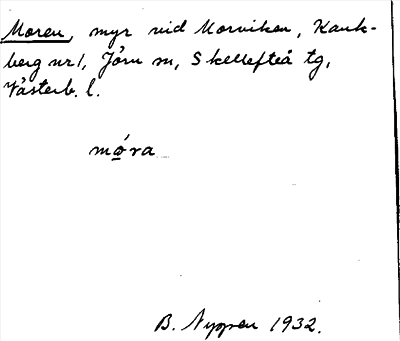 Moren, myr vid Morviken, Kank-
berg nr 1, Jörn sn, Skellefteå tg,
Västerb. l.
mo̱ra
B. Nyman 1932.